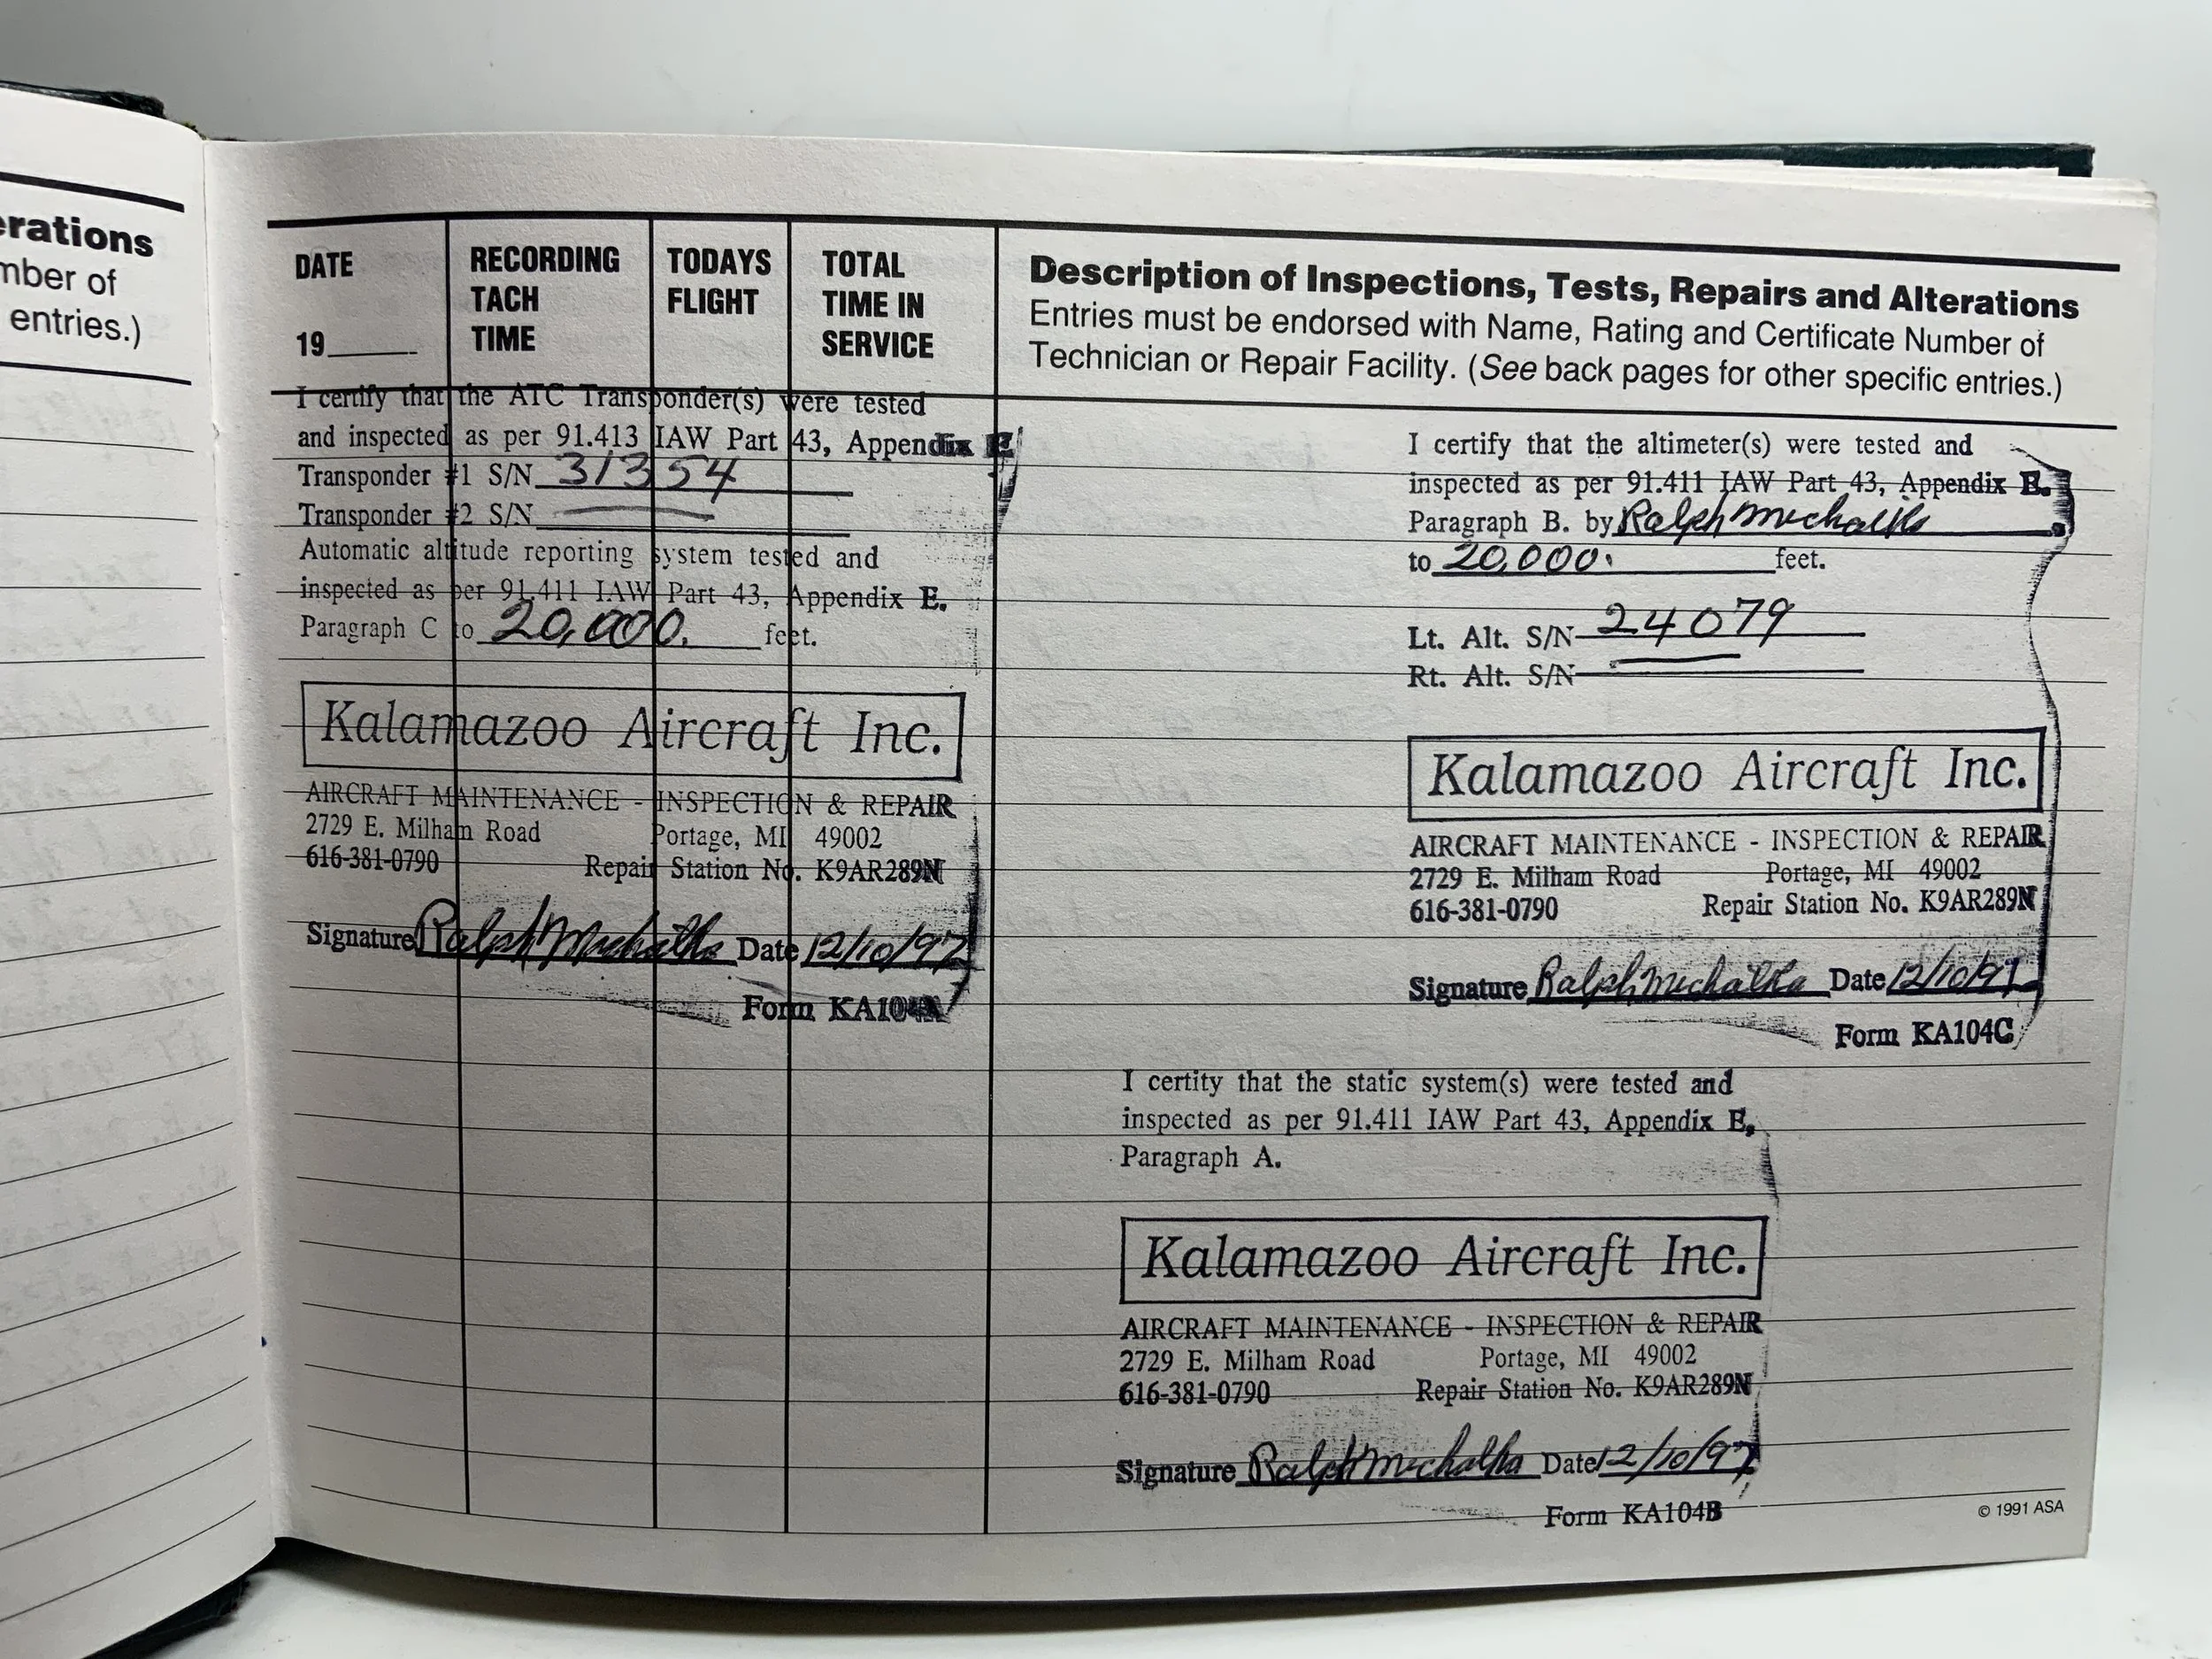 erations
mber of
entries.)
DATE
19____
RECORDING
TACH
TIME
TODAYS
FLIGHT
TOTAL
TIME IN
SERVICE
Description of Inspections, Tests, Repairs and Alterations
Entries must be endorsed with Name, Rating and Certificate Number of
Technician or Repair Facility. (See back pages for other specific entries.)
I certify that the ATC Transponder(s) were tested
and inspected as per 91.413 IAW Part 43, Appendix F.
Transponder #1 S/N 31354
Transponder #2 S/N
Automatic altitude reporting system tested and
inspected as per 91.411 IAW Part 43, Appendix E.
Paragraph C to 20,000. feet.
Kalamazoo Aircraft Inc.
AIRCRAFT MAINTENANCE - INSPECTION & REPAIR
2729 E. Milham Road Portage, MI 49002
616-381-0790 Repair Station No. K9AR289N
Signature Ralph Michalka Date 12/10/97
Form KA104A
I certify that the altimeter(s) were tested and
inspected as per 91.411 IAW Part 43, Appendix E.
Paragraph B. by Ralph Michalka
to 20,000. feet.
Lt. Alt. S/N 24079
Rt. Alt. S/N
Kalamazoo Aircraft Inc.
AIRCRAFT MAINTENANCE - INSPECTION & REPAIR
2729 E. Milham Road Portage, MI 49002
616-381-0790 Repair Station No. K9AR289N
Signature Ralph Michalka Date 12/10/97
Form KA104C
I certity that the static system(s) were tested and
inspected as per 91.411 IAW Part 43, Appendix E,
Paragraph A.
Kalamazoo Aircraft Inc.
AIRCRAFT MAINTENANCE - INSPECTION & REPAIR
2729 E. Milham Road Portage, MI 49002
616-381-0790 Repair Station No. K9AR289N
Signature Ralph Michalka Date 12/10/97
Form KA104B
© 1991 ASA